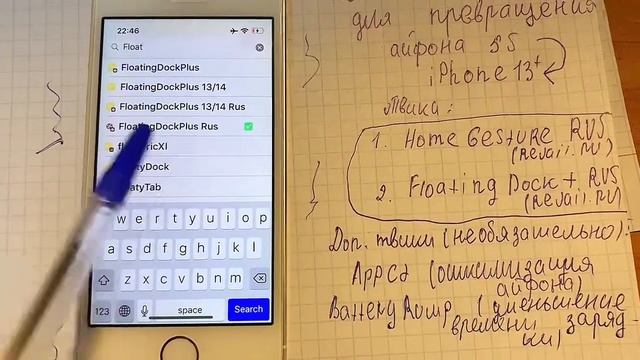 22:46
Float
FloatingDockPlus
FloatingDockPlus 13/14
FloatingDockPlus 13/14 Rus
FloatingDockPlus Rus
q w e r t y u i o p
a s d f g h j k l
z x c v b n m
123 space Search
для превращения
айфона 5S
iPhone 13+
Твики:
1. Home Gesture RUS
2. Floating Dock + RUS
Доп. твики (необязательно):
(оптимизация
айфона)
(уменьшение
времени заряд-
ки)